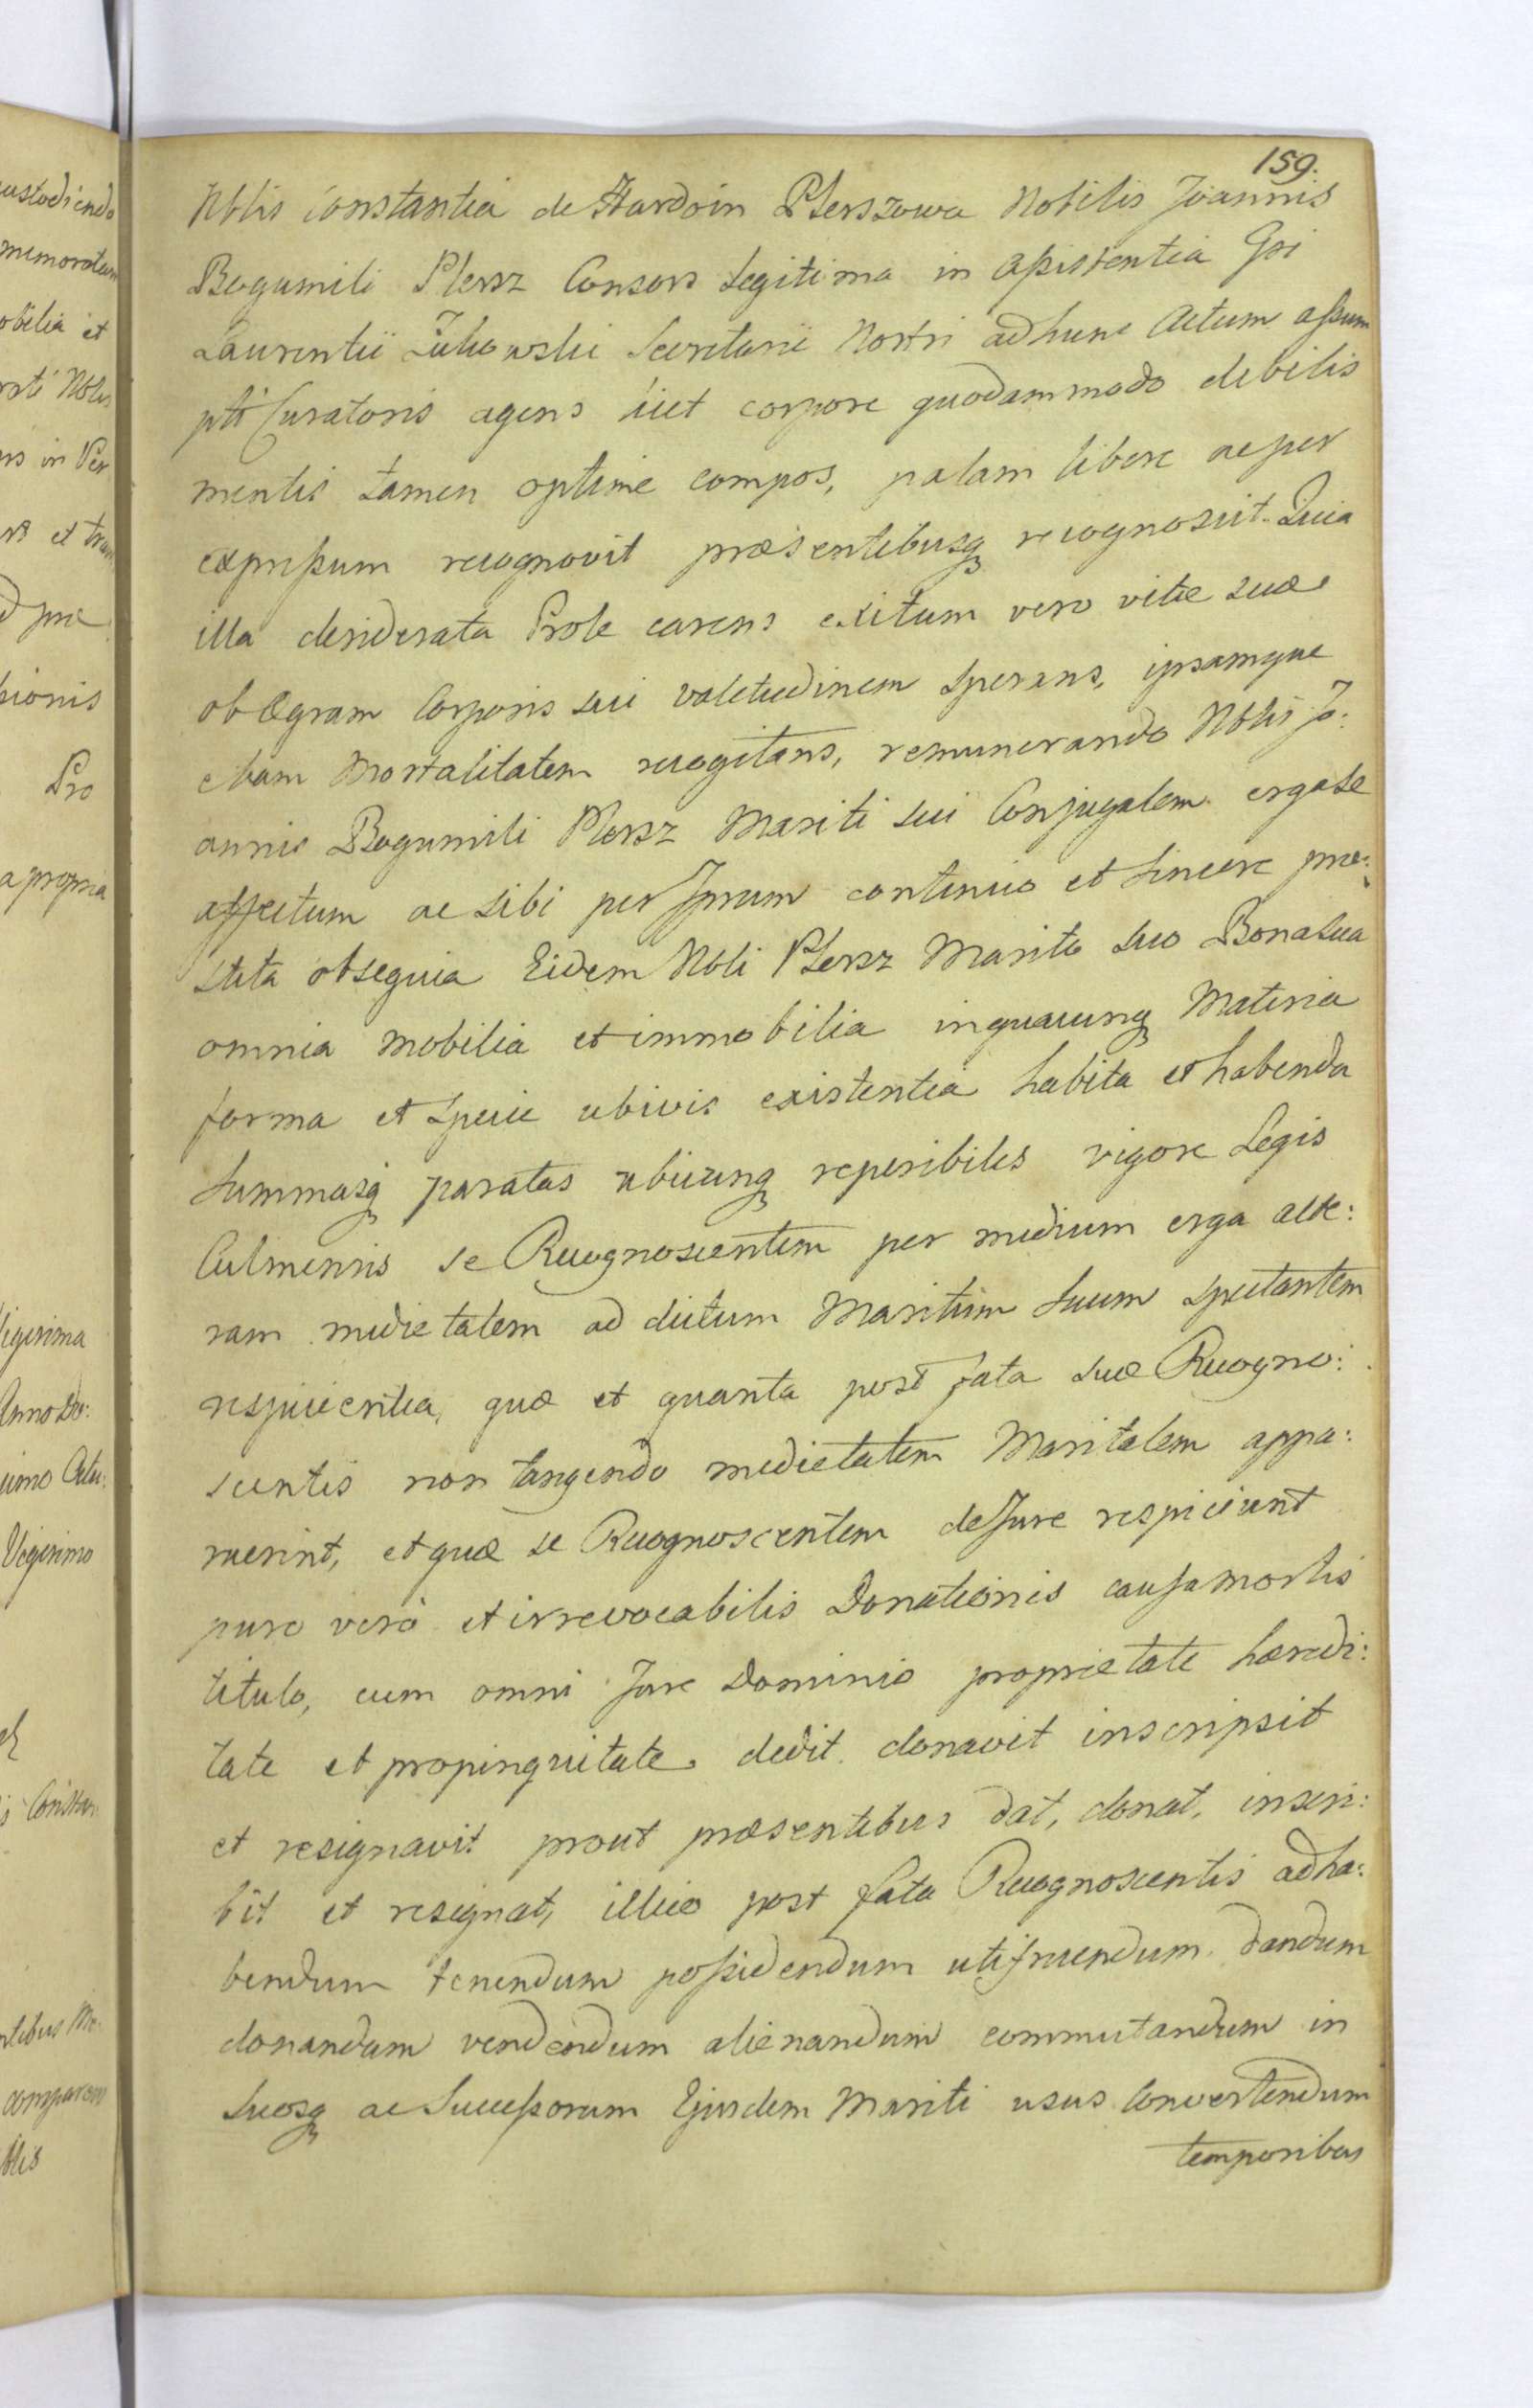 159.
Nblis Constantia de Hardoin Plerszowa Nobilis Joannis
Bogumili Plersz Consors legitima in assistentia Gsi
Laurentii Żukowski Secretarii Nostri ad hunc Actum assum
pti Curatoris agens licet corpore quodammodo debilis
mentis tamen optime compos, palam libere ac per
expressum recognovit præsentibusq recognoscit. Quia
illa desiderata Prole carens exitum vero vitæ suæ
ob ægram Corporis sui valetudinem sperans, ipsamque
etiam Mortalitatem recogitans, remunerando Nblis Jo:
annis Bogumili Plersz Mariti sui Conjugalem erga se
affectum ac sibi per Ipsum continuo et sincere præ:
stita obsequia Eidem Nbli Plersz Marito suo Bona sua
omnia mobilia et immobilia in quacunq Materia
forma et specie ubivis existentia habita et habenda
Summasq paratas ubicunq reperibiles vigore Legis
Culmensis se Recognoscentem per medium erga alte:
ram medietatem ad dictum Maritum suum spectantem
respicientia, quæ et quanta post fata suæ Recogno:
scentis non tangendo medietatem Maritalem appa:
ruerint, et quæ se Recognoscentem de Jure respiciunt
puro vero et irrevocabilis Donationis causa mortis
titulo, cum omni Jure Dominio proprietate hæredi:
tate et propinquitate dedit donavit inscripsit
et resignavit prout præsentibus dat, donat, inscri:
bit et resignat, illico post fata Recognoscentis ad ha:
bendum tenendum possidendum utifruendum dandum
donandum vendendum alienandum commutandum in
suosq ac Successorum Ejusdem Mariti usus convertendum
temporibus
ustodiendo
memoratam
obilia et
Nblis
ns in Per
et tran
præ
sionis
Pro
a propria
igesima
Anno Do:
Vigesimo
Constan
ntibus
comparen
blis